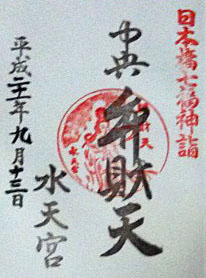 日本橋七福神詣
中央 弁財天
水天宮
平成二十一年九月十三日
財天
水天宮